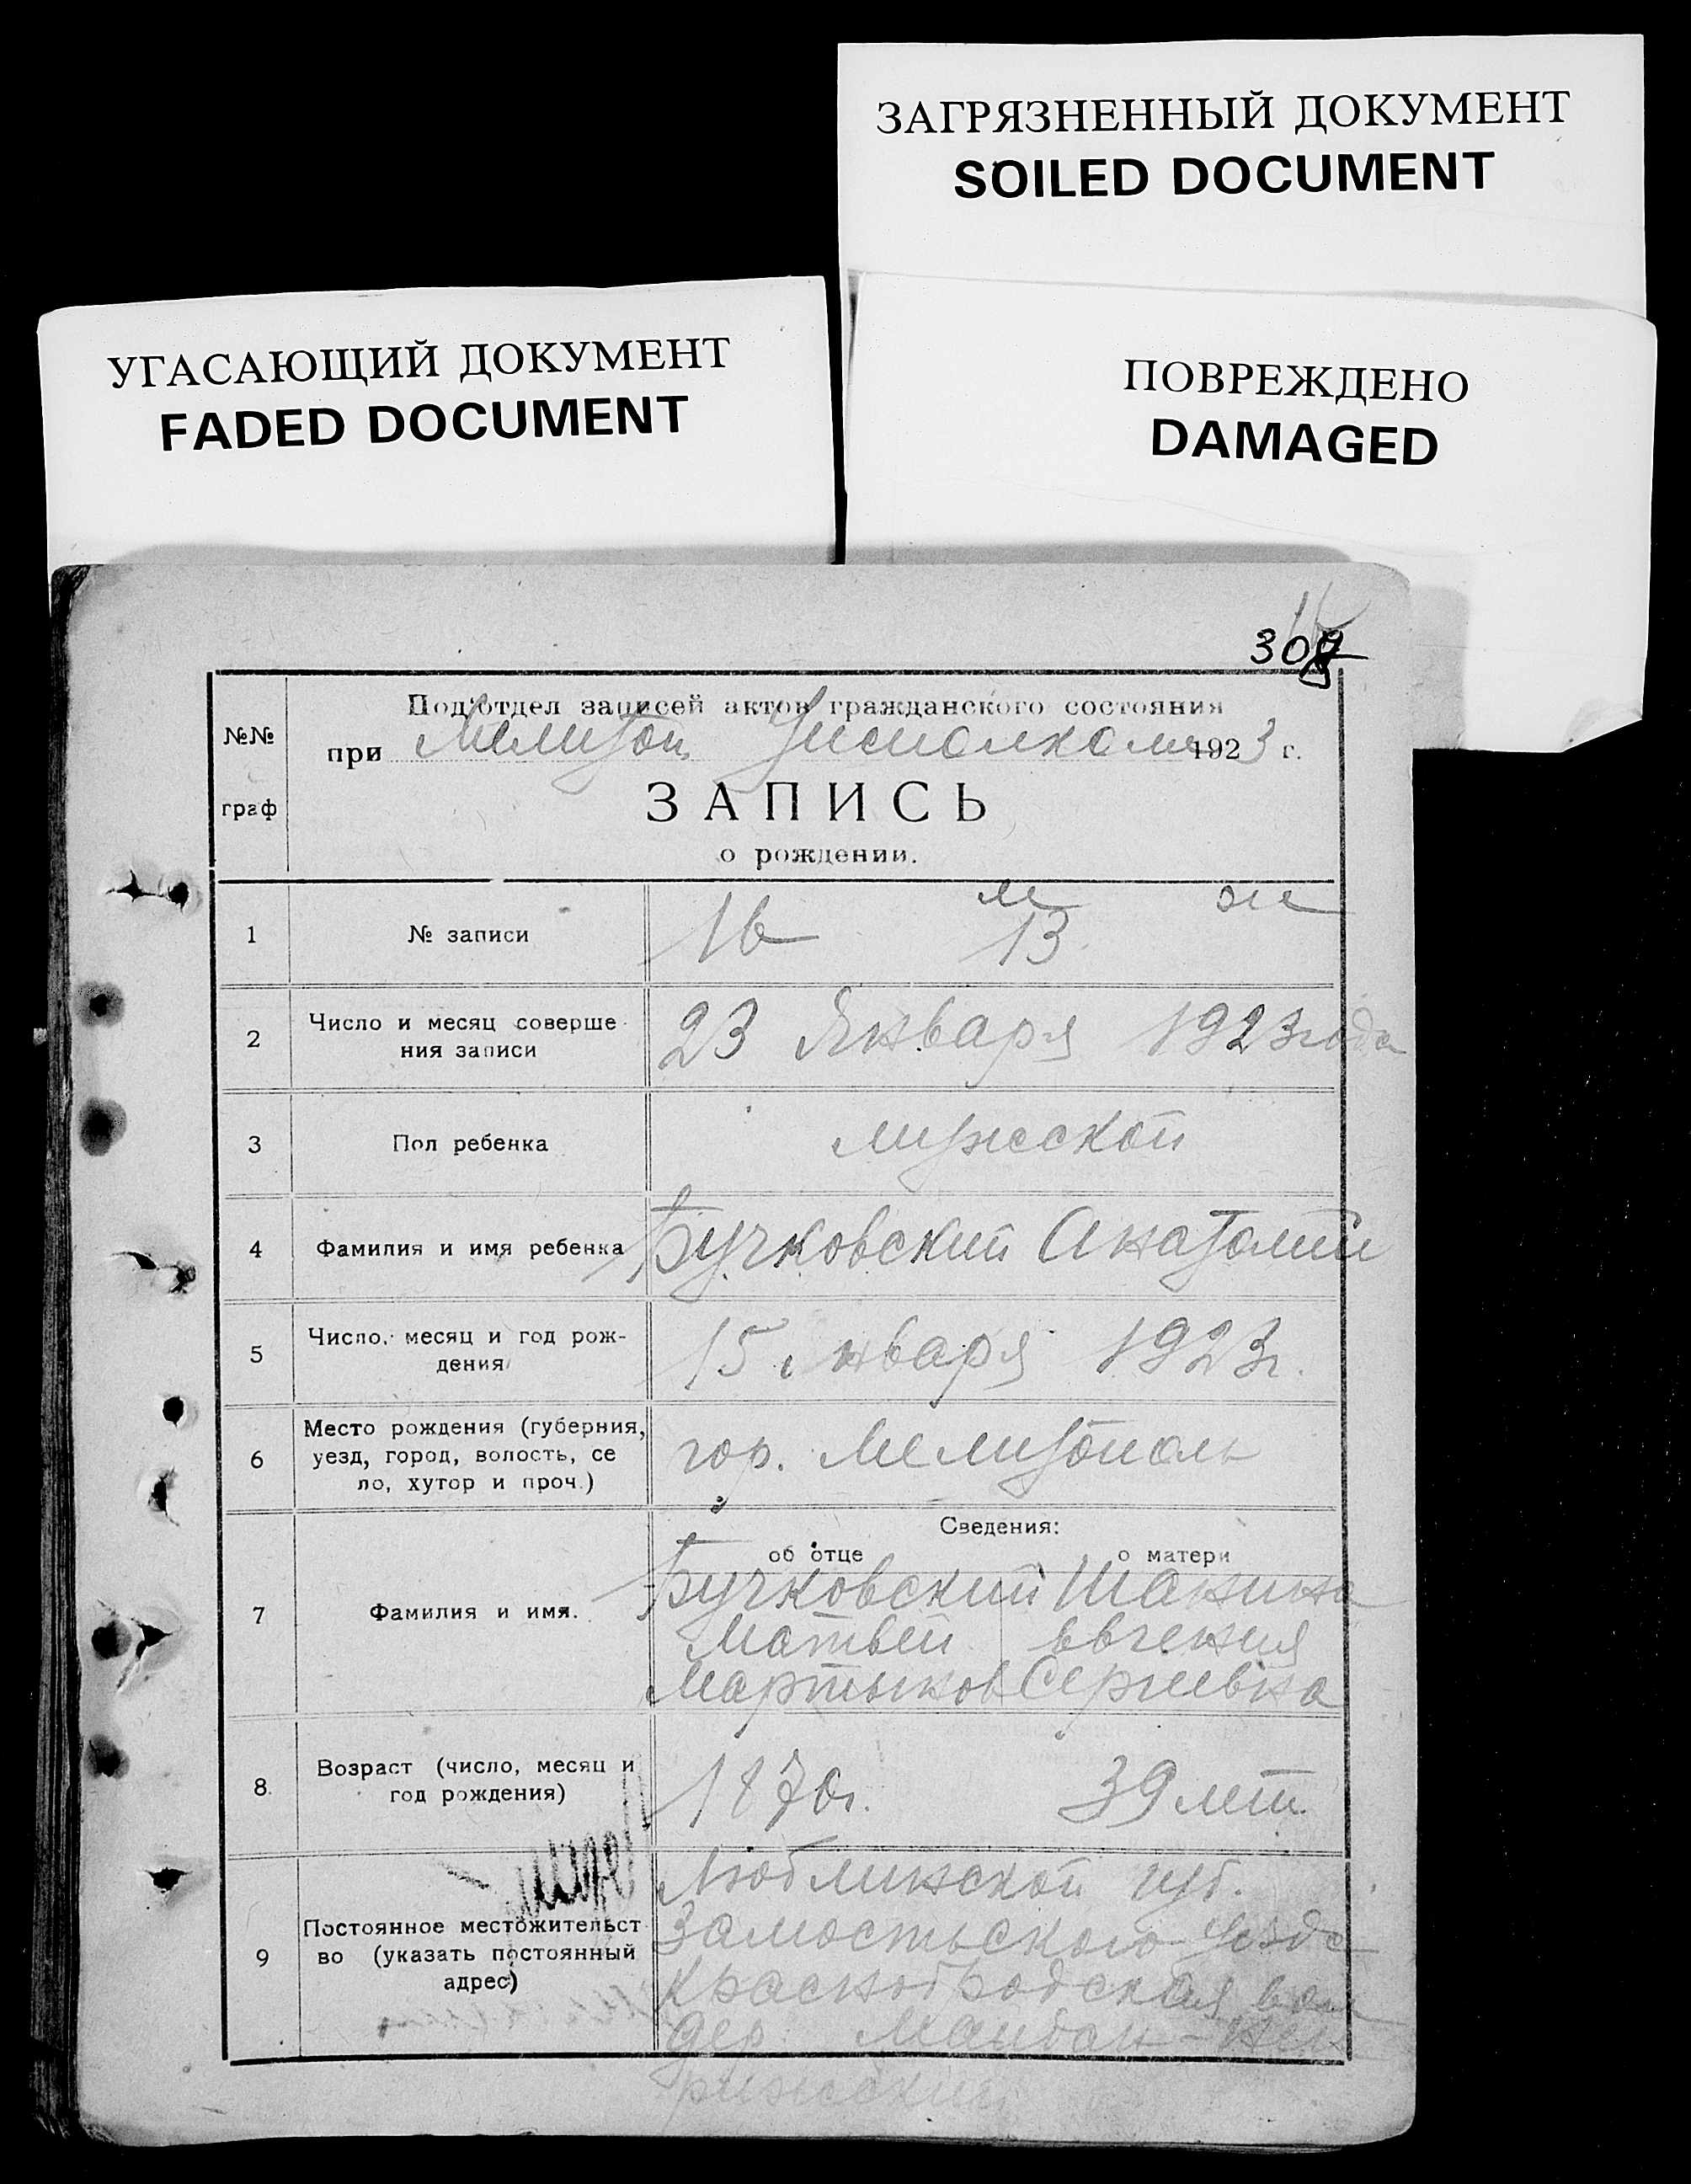 ЗАГРЯЗНЕННЫЙ ДОКУМЕНТ
SOILED DOCUMENT
УГАСАЮЩИЙ ДОКУМЕНТ
FADED DOCUMENT
ПОВРЕЖДЕНО
DAMAGED
№№ граф
Под'отдел записей актов гражданского состояния
при Мелитоп. Исполкоме 1923 г.
ЗАПИСЬ
о рождении.
м ж
1 № записи 16 13
2 Число и месяц соверше
ния записи
23 Января 1923 года
3 Пол ребенка мужской
4 Фамилия и имя ребенка Бучковский Анатолий
5 Число, месяц и год рож-
дения
15 января 1923 г.
6 Место рождения (губерния,
уезд, город, волость, се
ло, хутор и проч.)
гор. Мелитополь
Сведения:
об отце о матери
7 Фамилия и имя.
Бучковский Шанина
Матвей Евгения
Мартынов Сергеевна
8. Возраст (число, месяц и
год рождения)
1870г. 39 лет
9 Постоянное местожительст
во (указать постоянный
адрес)
Люблинской губ.
Замостьского уезда
Краснобродская вол
дер. Майдан